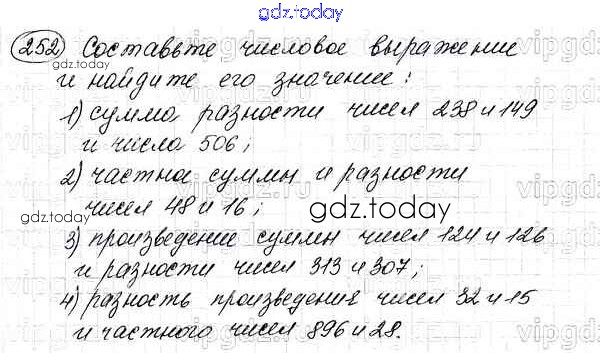 gdz.today
252) Составьте числовое выражение
gdz.today
и найдите его значение:
1) сумма разности чисел 238 и 149
и числа 506;
2) частное суммы и разности
чисел 48 и 16;
gdz.today
gdz.today
3) произведение суммы чисел 124 и 126
и разности чисел 313 и 307;
4) разность произведения чисел 32 и 15
и частного чисел 896 и 28.